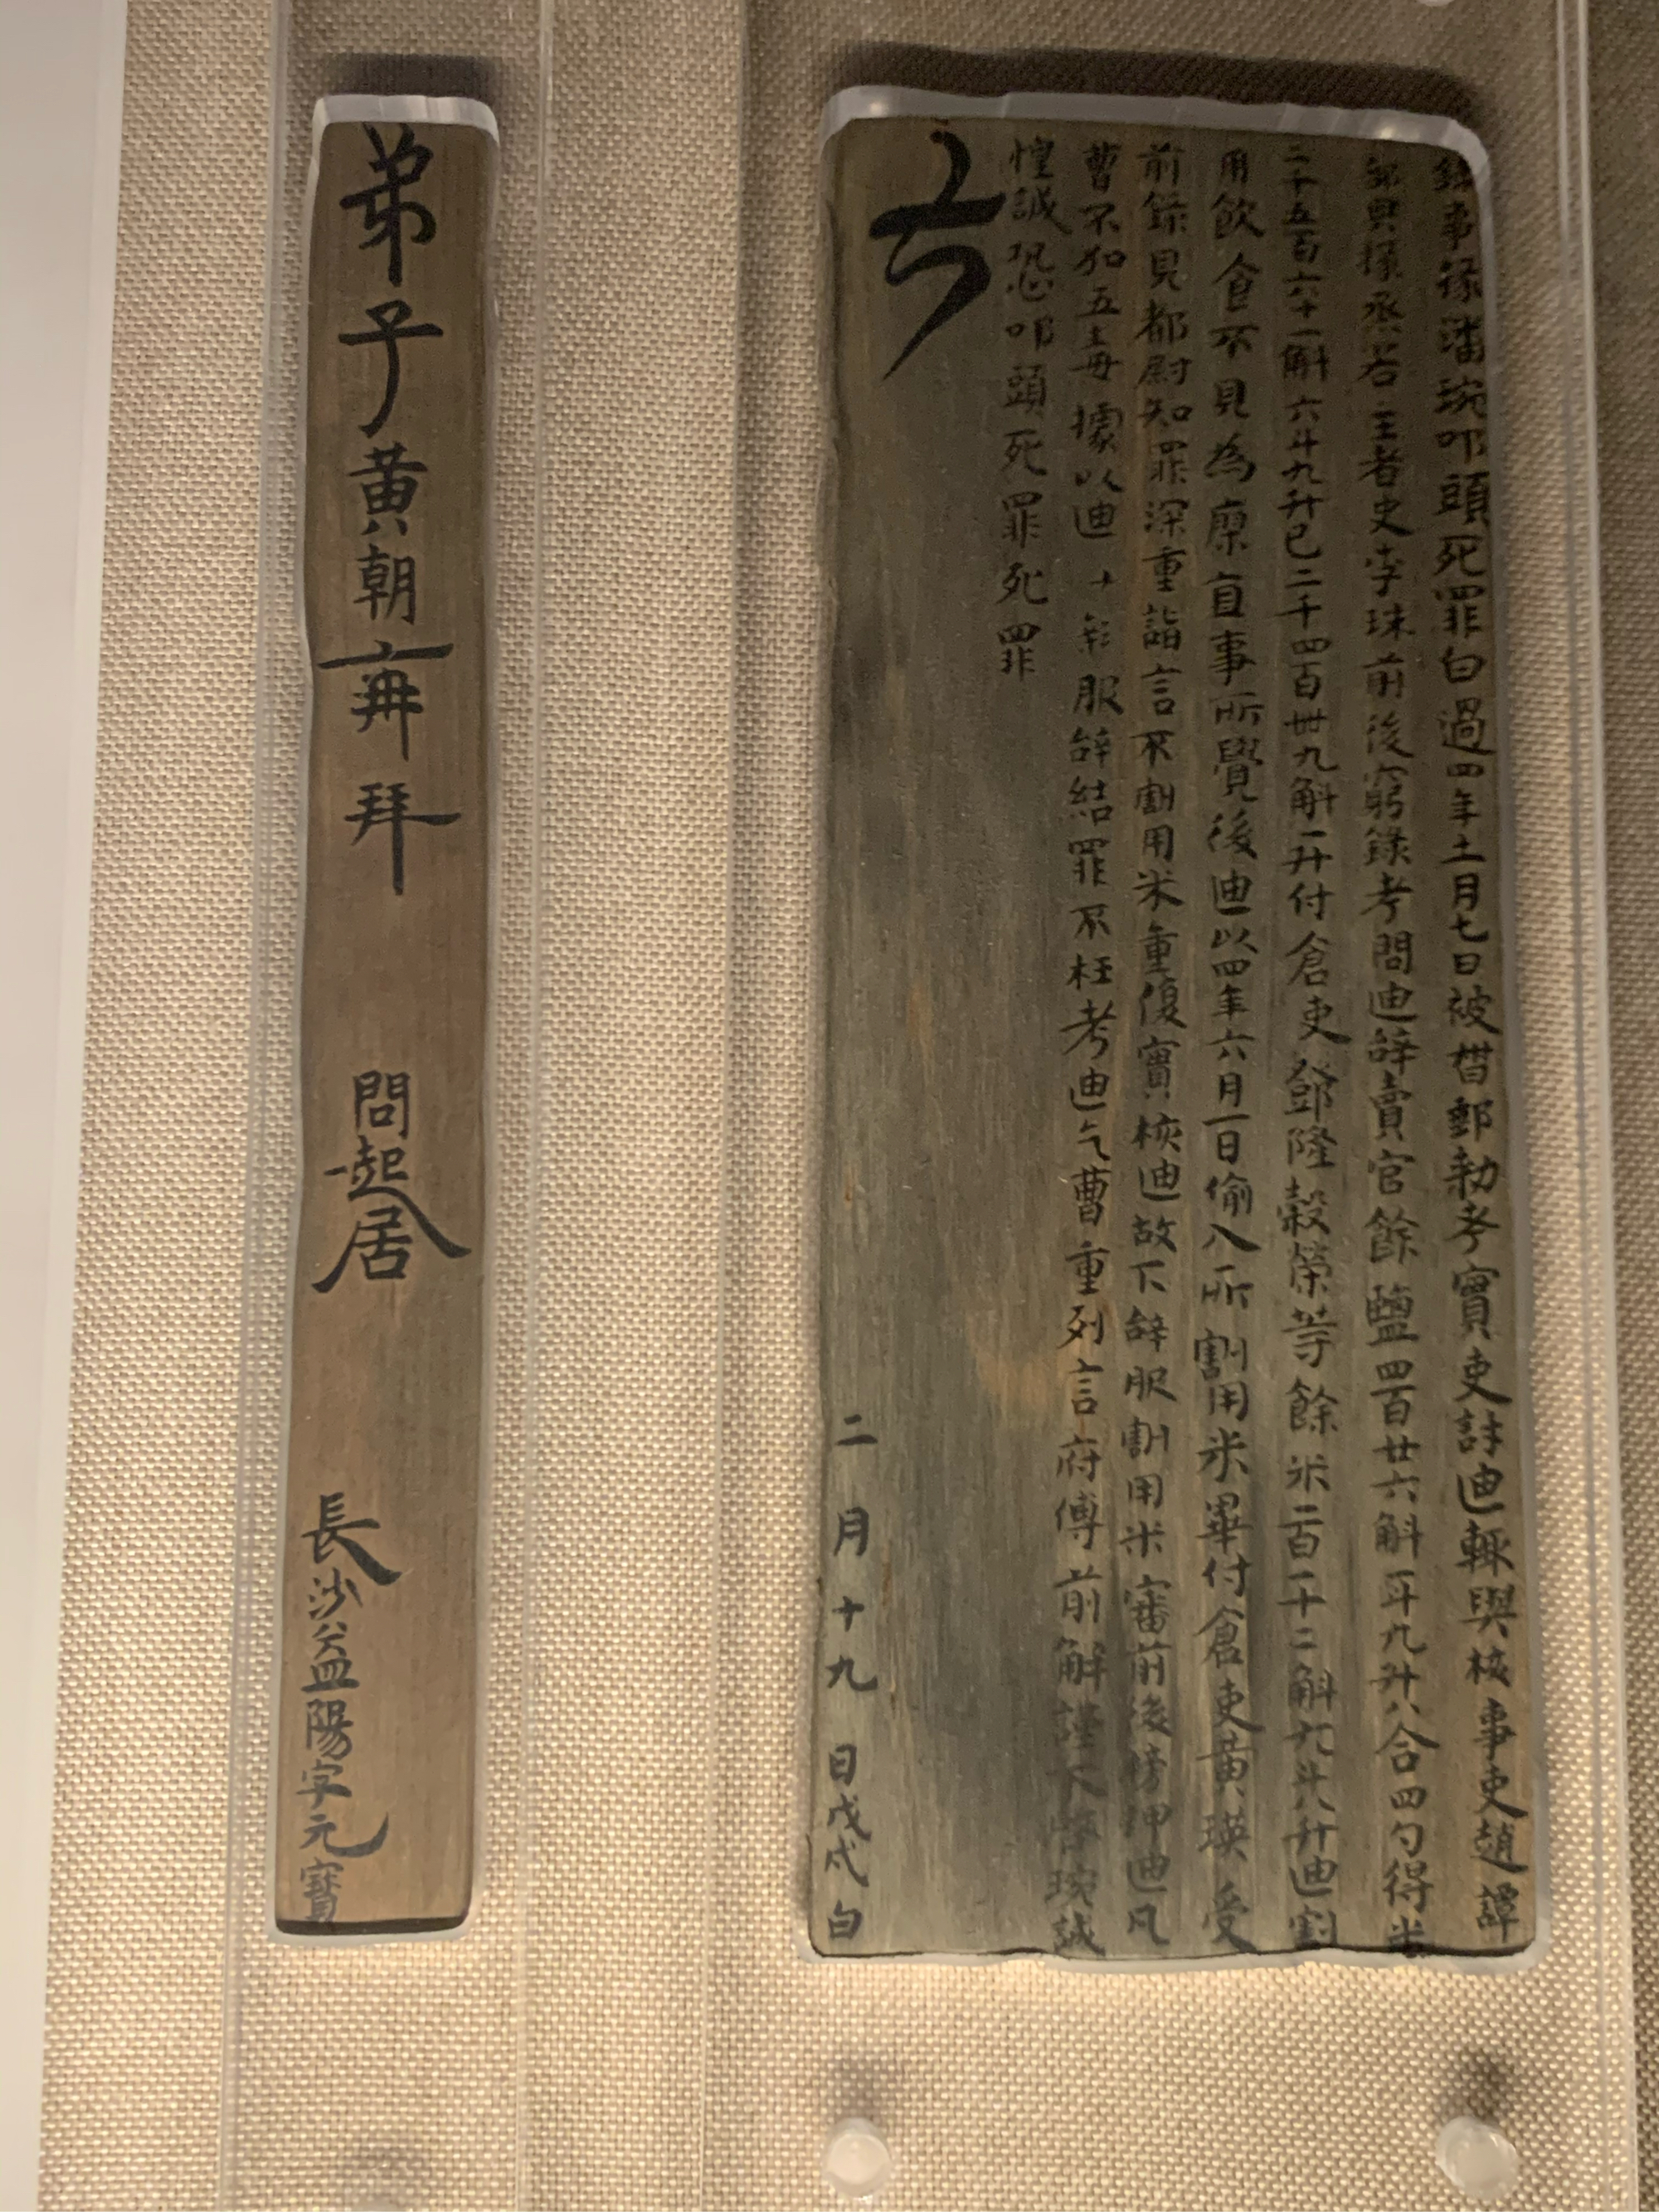 錄事掾潘琬叩頭死罪白過四年十一月七日被督郵勑考實吏許迪輒與核事吏趙譚
部典掾烝若主者史李珠前後窮錄考問迪辭賣官餘鹽四百廿六斛一斗九升八合四勺得米
二千五百六十一斛六斗九升已二千四百卌九斛一升付倉吏鄧隆穀榮等餘米一百一十二斛六斗八升迪割
用飲食不見為廖直事所覺後迪以四年六月一日偷入所割用米畢付倉吏黃瑛受
前錄見都尉知罪深重詣言不割用米重復實核迪故下辭服割用米審前後榜押迪凡
曹不加五毒據以迪服辭結罪不枉考迪乞曹重列言府傅前解謹下啓琬誠
惶誠恐叩頭死罪死罪
二月十九日戊戌白
弟子黃朝再拜 問起居 長沙益陽字元寶